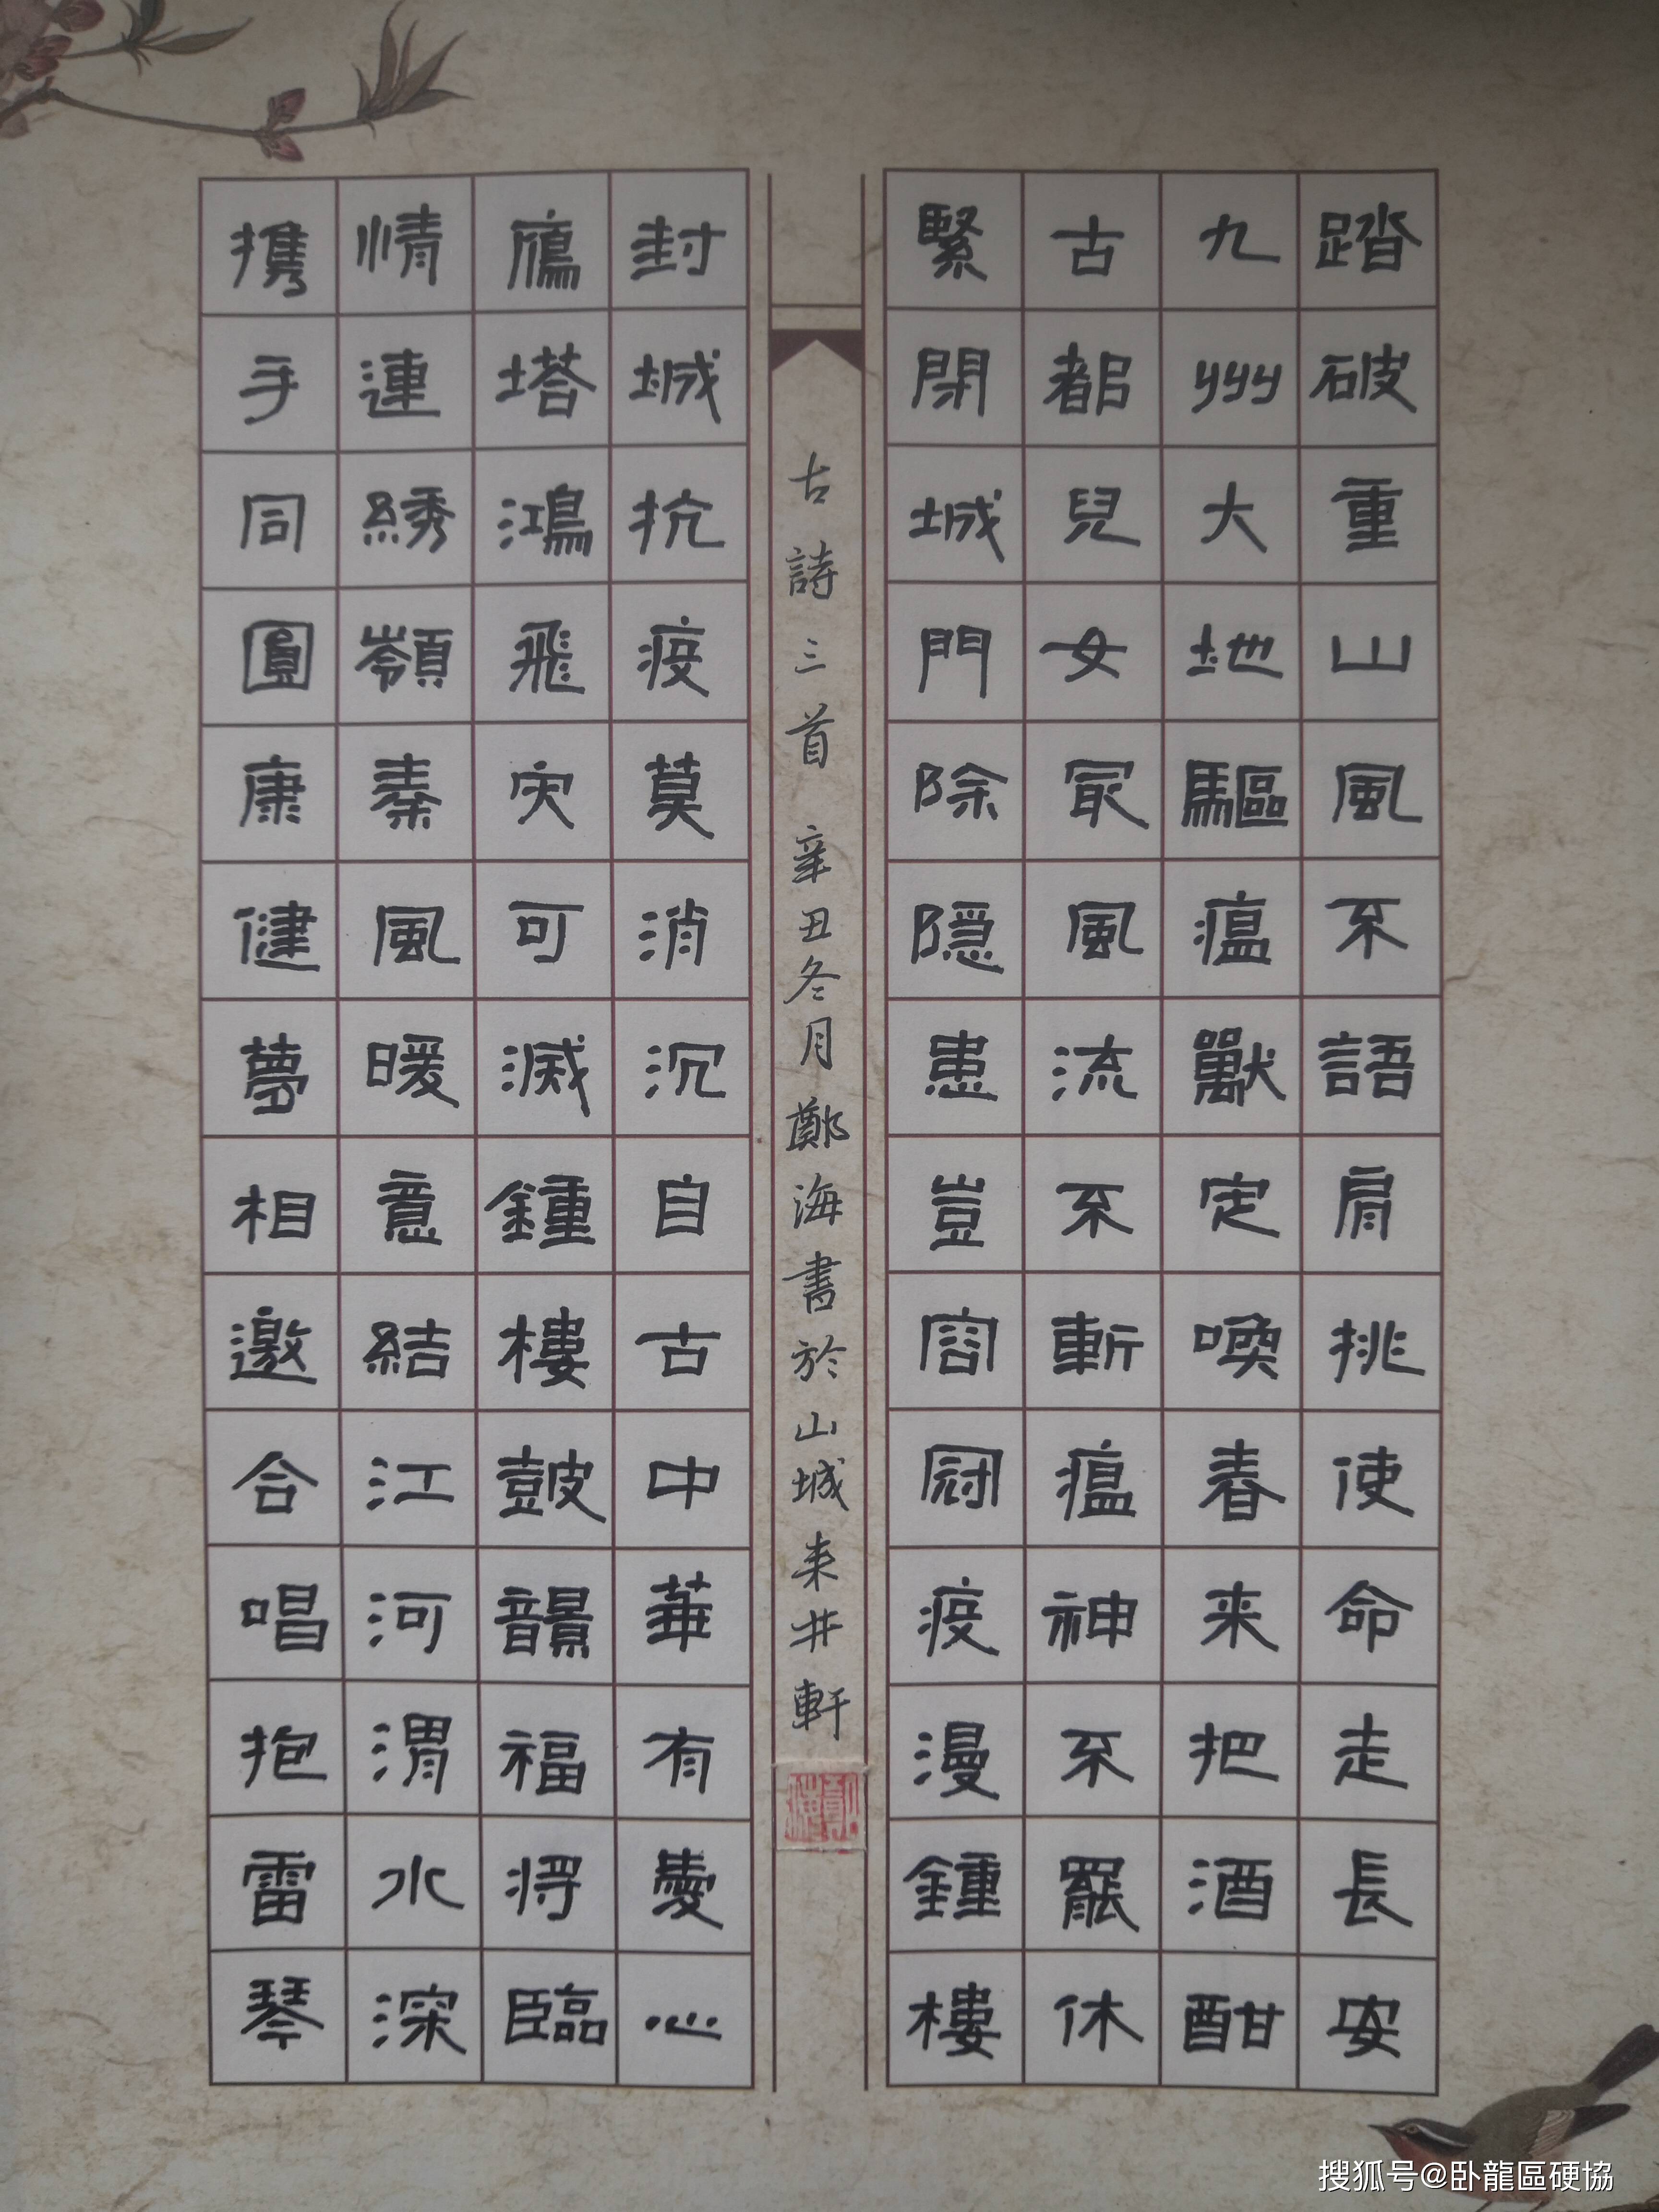 踏破重山風不語肩挑使命走長安
九州大地驅瘟獸定喚春来把酒酣
古都兒女最風流不斬瘟神不罷休
緊閉城門除隱患豈容冠疫漫鍾樓
封城抗疫莫消沉自古中華有愛心
鴈塔鴻飛灾可滅鍾樓鼓韻福将臨
情連綉嶺秦風暖意結江河渭水深
携手同圓康健夢相邀合唱抱雷琴
古詩三首 辛丑冬月鄭海書於山城耒井軒
搜狐号@卧龍區硬協